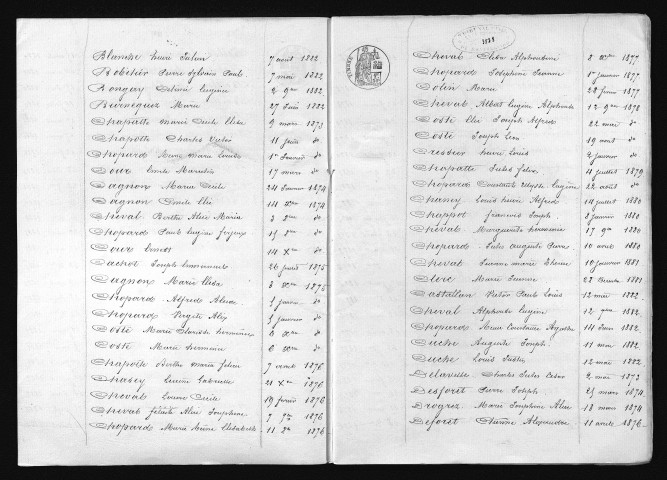 Blanche Henri Julien 7 août 1882
Bobilier Pierre Sylvain Paul 7 mai 1882
Bongay Eugène 2 9bre 1882
Burnequez Marie 27 Juin 1882
Chapatte Marie Cécile Elisa 9 mars 1873
Chapatte Charles Victor 11 Juin do
Chopard Marie Louise 1er Janvier do
Cour Emile 17 mars do
Cagnon Marie Cécile 24 Janvier 1874
Cagnon Emile Elie 14 Xbre 1874
Cheval Berthe Alice Maria 3 do
Chopard Paul Eugène 15 do
Cour Ernest 14 Xbre do
Cachot Joseph Emmanuel 26 1875
Cagnon Marie Elisa 3 Xbre 1875
Chopard Alfred 1 Janvier do
Chopard Alix 5 Janvier do
Coste Marie Clarisse Herminie do
Coste Marie Herminie 6 Xbre do
Chapatte Berthe Maria 7 avril 1876
Chasey Lucine Gabrielle 21 Xbre 1876
Cheval Cécile 19 février 1876
Cheval Alice Joséphine 7 7bre 1876
Chopard Marie Elisabeth 11 1876
1881
Cheval Elisa Alphonsine 2 1877
Chopard Joséphine Jeanne 1er Janvier 1877
Colin Marie 22 1877
Cheval Albert Eugène Alphonse 12 9bre 1878
Coste Elie Joseph Alfred 22 mai do
Coste Joseph Léon 19 août do
Cressier Henri Louis 2 Janvier do
Chapatte Jules Félix 4 Juillet 1879
Chopard Constant Ulysse Eugène 22 août do
Chancy Louis Henri Alfred 14 Juillet 1880
Chappot François Joseph 8 Janvier 1880
Cheval Marguerite Herminie 17 9bre 1880
Chopard Jules Auguste Pierre 10 avril 1880
Cheval Jeanne Marie 10 Janvier 1881
Clerc Marie Jeanne 1881
Castellan Victor Paul Louis 12 mai 1882
Cheval Alphonse Eugène 12 1882
Chopard Constance Agathe 14 Juin 1882
Cuche Auguste Joseph 11 mai 1882
Cuche Louis Justin 12 mai 1882
Delavelle Charles Jules César 2 mai 1873
Desforêt Pierre Joseph 25 mars 1874
Drogrez Marie Joséphine Alice 18 mars 1874
Deforêt Alexandre 11 avril 1876